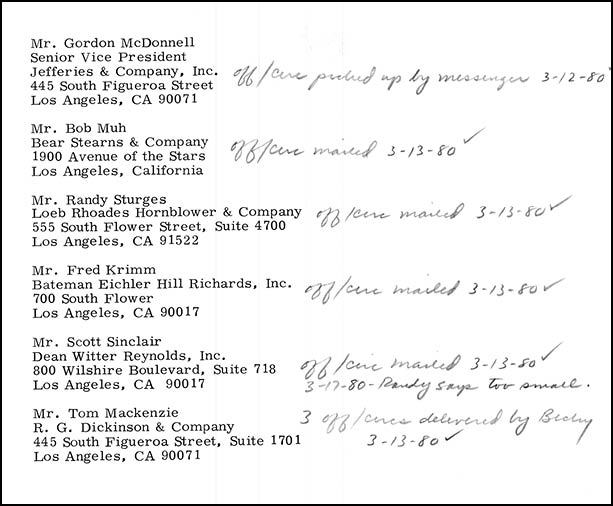 Mr. Gordon McDonnell
Senior Vice President
Jefferies & Company, Inc.
445 South Figueroa Street
Los Angeles, CA 90071
off/circ picked up by messenger 3-12-80
Mr. Bob Muh
Bear Stearns & Company
1900 Avenue of the Stars
Los Angeles, California
off/circ mailed 3-13-80 ✓
Mr. Randy Sturges
Loeb Rhoades Hornblower & Company
555 South Flower Street, Suite 4700
Los Angeles, CA 91522
off/circ mailed 3-13-80 ✓
Mr. Fred Krimm
Bateman Eichler Hill Richards, Inc.
700 South Flower
Los Angeles, CA 90017
off/circ mailed 3-13-80 ✓
Mr. Scott Sinclair
Dean Witter Reynolds, Inc.
800 Wilshire Boulevard, Suite 718
Los Angeles, CA 90017
off/circ mailed 3-13-80 ✓
3-17-80-Randy says too small.
Mr. Tom Mackenzie
R. G. Dickinson & Company
445 South Figueroa Street, Suite 1701
Los Angeles, CA 90071
3 off/circs delivered by Becky
3-13-80 ✓